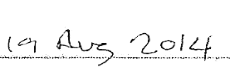 19 Aug 2014